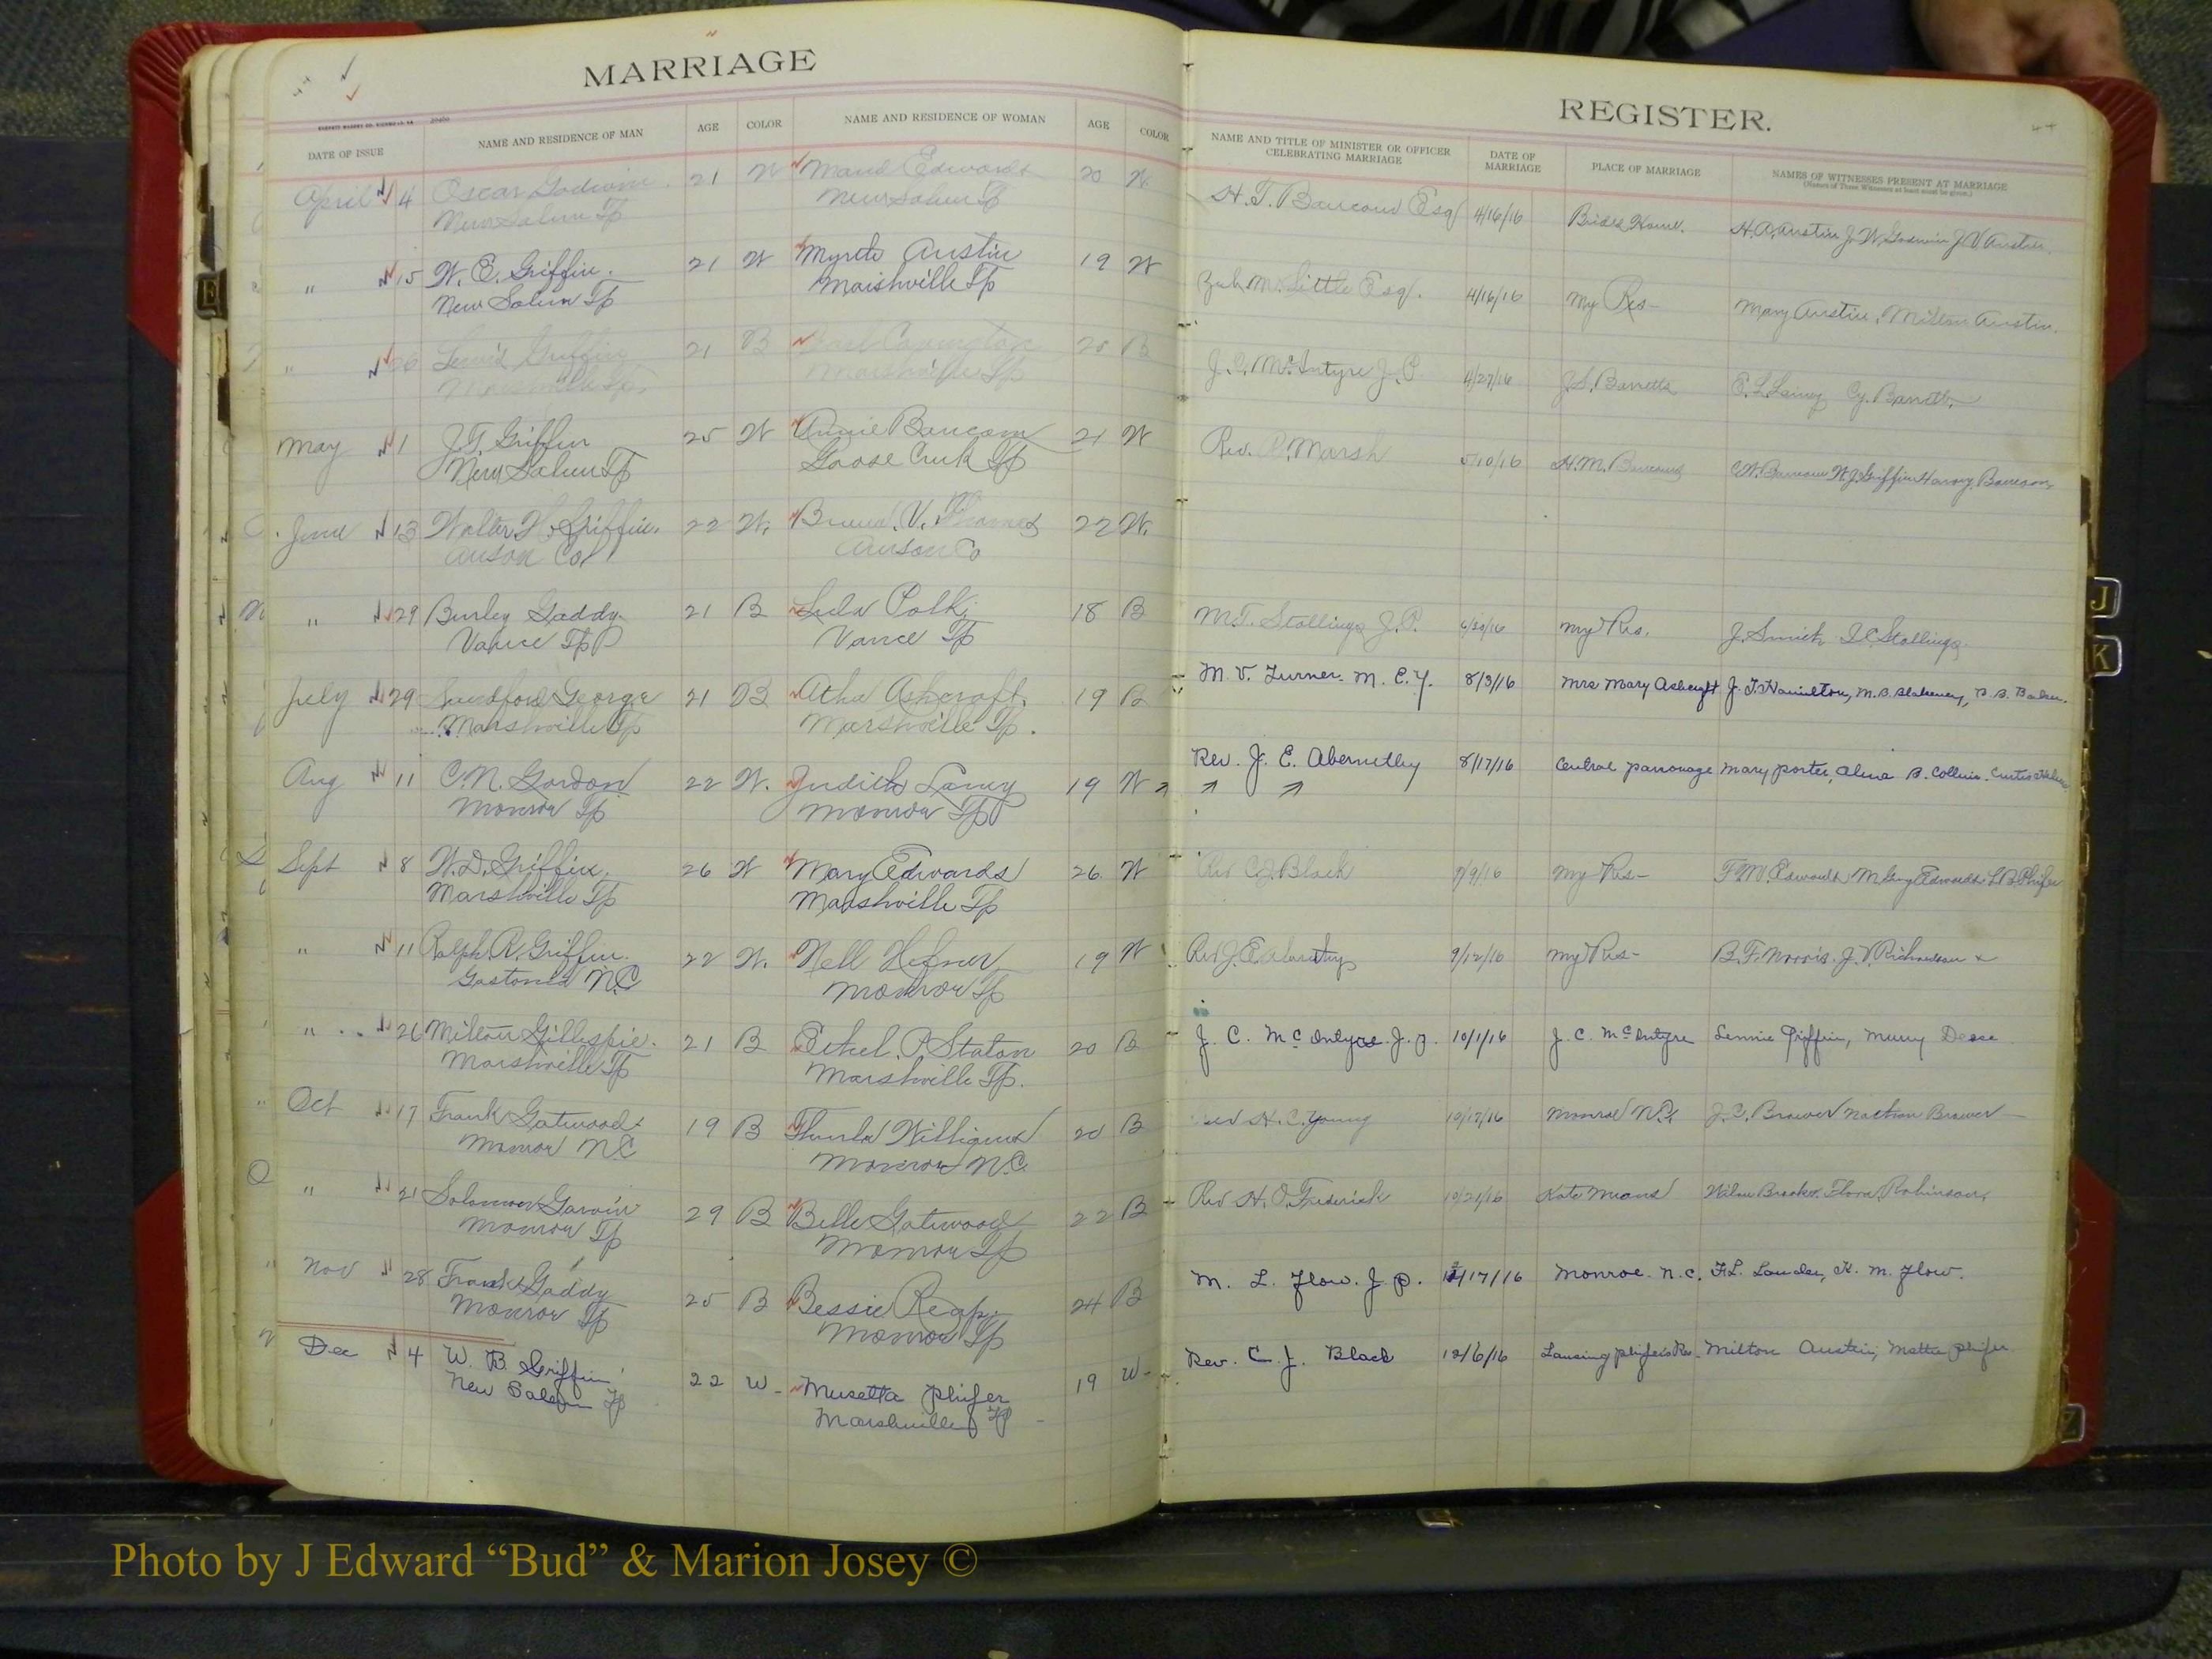 MARRIAGE
DATE OF ISSUE NAME AND RESIDENCE OF MAN AGE COLOR NAME AND RESIDENCE OF WOMAN AGE COLOR
April 14 Oscar Godwin 21 W Maud Edwards 20 W
New Salem Tp New Salem Tp
" 15 W. E. Griffin. 21 W Myrtle Austin 19 W
New Salem Tp Marshville Tp
" 26 Griffin 21 B 20 B
Marshville Tp. Marshville Tp
May 1 J. T. Griffin 25 W Annie Baucom 21 W
New Salem Tp Goose Creek Tp
June 13 Walter H. Griffin. 22 W. V. Thomas 22 W.
Anson Co Anson Co
" 29 Burley Gaddy. 21 B Lula Polk 18 B
Vance Tp Vance Tp
July 29 Sandford George 21 B Atha Ashcraft. 19 B
Marshville Tp Marshville Tp.
Aug 11 C. N. Gordon 22 W. Judith Laney 19 W
Monroe Tp Monroe Tp
Sept 8 W. D. Griffin. 26 W Mary Edwards 26 W
Marshville Tp Marshville Tp
" 11 Ralph R. Griffin. 22 W. Nell Hefner 19 W
Gastonia N.C Monroe Tp
" 26 Milton Gillespie. 21 B Ethel P Staton 20 B
Marshville Tp Marshville Tp.
Oct 17 Frank Gatwood 19 B Williams 20 B
Monroe N.C Monroe N.C.
" 21 Solomon Garvin 29 B Belle Gatwood 22 B
Monroe Tp Monroe Tp
Nov 28 Frank Gaddy 25 B Bessie Reap. 24 B
Monroe Tp Monroe Tp
Dec 4 W. B. Griffin 22 W - Musetta Phifer 19 W -
New Salem Tp Marshville Tp -
REGISTER.
44
NAME AND TITLE OF MINISTER OR OFFICER CELEBRATING MARRIAGE DATE OF MARRIAGE PLACE OF MARRIAGE NAMES OF WITNESSES PRESENT AT MARRIAGE
(Names of Three Witnesses at least must be given.)
H. T. Baucom Esq 4/16/16 Brides Home. H. A. Austin J. W. Godwin J. V. Austin.
M. Little Esq. 4/16/16 My Res- Mary Austin, Milton Austin.
J. C. McIntyre J. P 4/27/16 J. S. Barretts E. L. Laney Cy. Barrett.
Rev. Marsh 5/10/16 H. M. Baucoms Baucom W. J. Griffin Harvey Baucom
M. T. Stallings J. P. 6/30/16 My Res. J. Smith Stallings.
M. V. Turner. M. E. Y. 8/3/16 Mrs Mary Ashcraft J. T. Hamilton, M. B. Blakeney, B. B. Baker.
Rev. J. E. Abernethy 8/17/16 Central parsonage Mary Porter, Alma B. Collins. Curtis
Rev C. J. Black 9/9/16 My Res- F M. Edwards M Edwards L B Phifer
Rev J. E. Abernethy 9/12/16 My Res- B. F. Norris. J. V. Richardson
J. C. McIntyre. J. P. 10/1/16 J. C. McIntyre Lennie Griffin,
H. C. Young 10/17/16 Monroe N.C. J. C. Brewer Brewer
Rev H. O. Frederick 10/21/16 Kate Means Brooks. Flora Robinson,
M. L. Flow. J. P. 12/17/16 Monroe. N. C. F. L. Lowder, K. M. Flow.
Rev. C. J. Black 12/6/16 Lansing Phifers Res. Milton Austin, Phifer
J
K
Z
Photo by J Edward “Bud” & Marion Josey ©